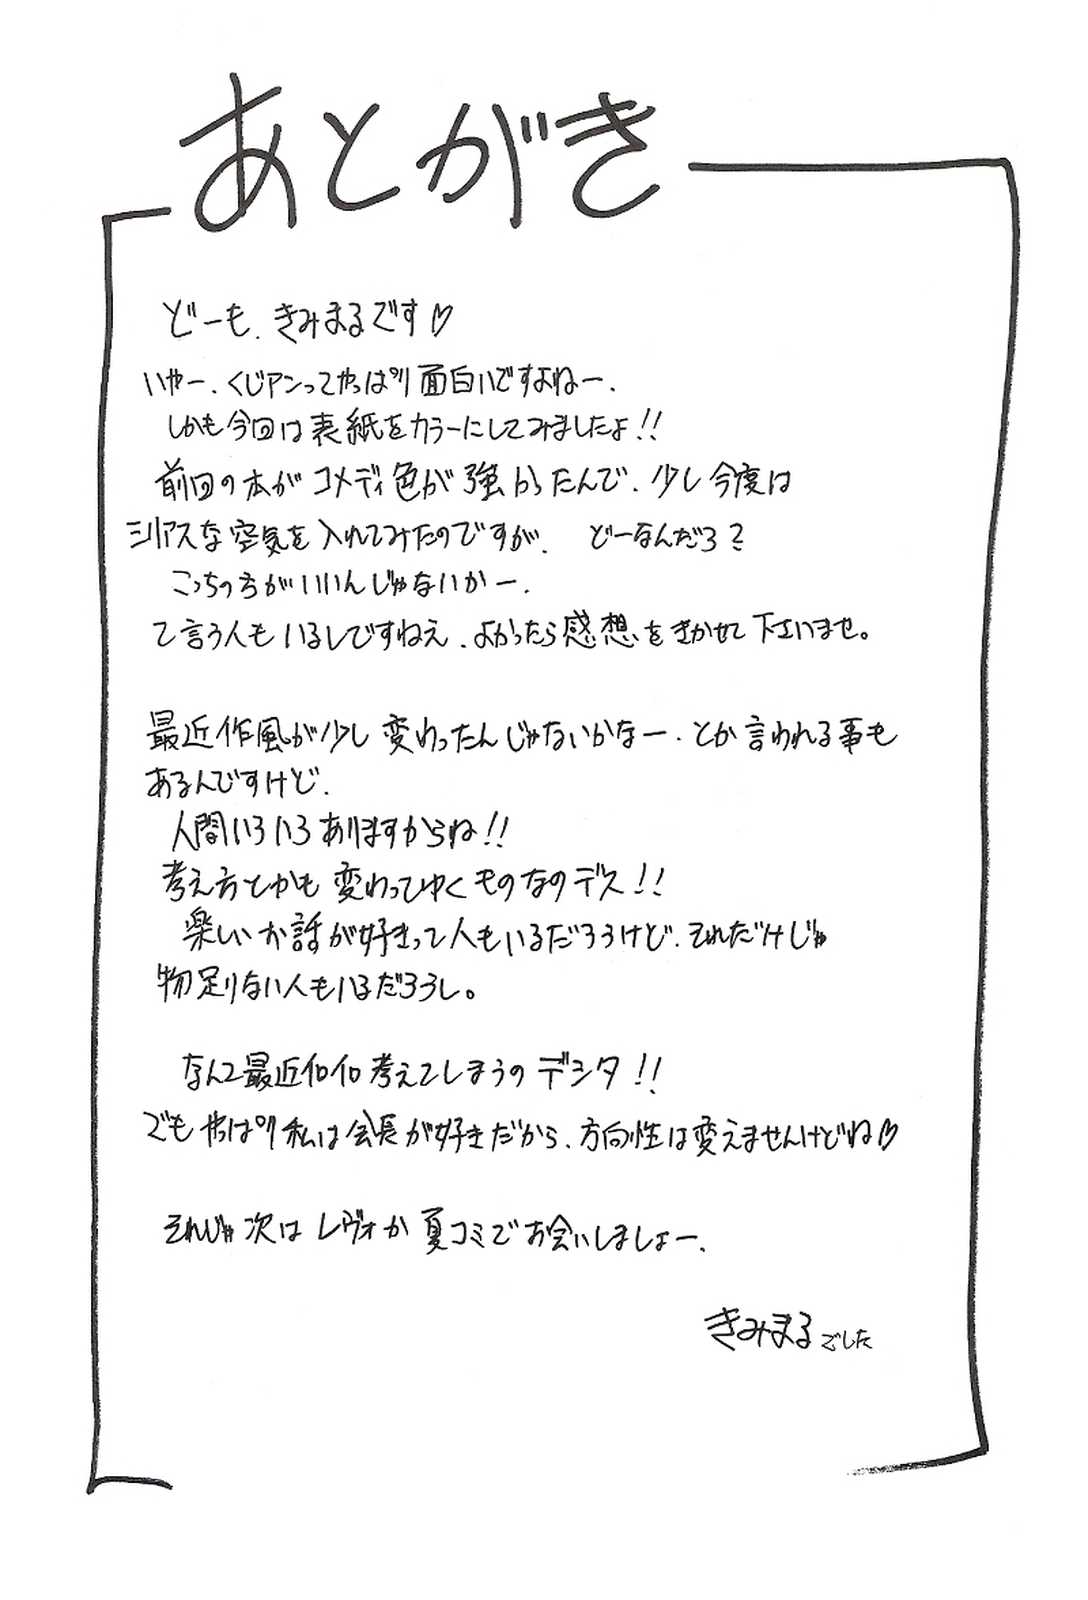 あとがき
どーも、きみまるです♡
いやー、くじアンってやっぱり面白いですよねー、
しかも今回は表紙をカラーにしてみましたよ!!
前回の本がコメディ色が強かったんで、少し今度は
シリアスな空気を入れてみたのですが、 どーなんだろ?
こっちの方がいいんじゃないかー、
て言う人もいるしですねえ、よかったら感想をきかせて下さいませ。
最近作風が少し変わったんじゃないかなー、とか言われる事も
あるんですけど、
人間いろいろありますからね!!
考え方とかも変わってゆくものなのデス!!
楽しいお話が好きって人もいるだろうけど、それだけじゃ
物足りない人もいるだろうし。
なんて最近イロイロ考えてしまうのデシタ!!
でもやっぱり私は会長が好きだから、方向性は変えませんけどね♡
それじゃ次はレヴォか夏コミでお会いしましょー、
きみまるでした